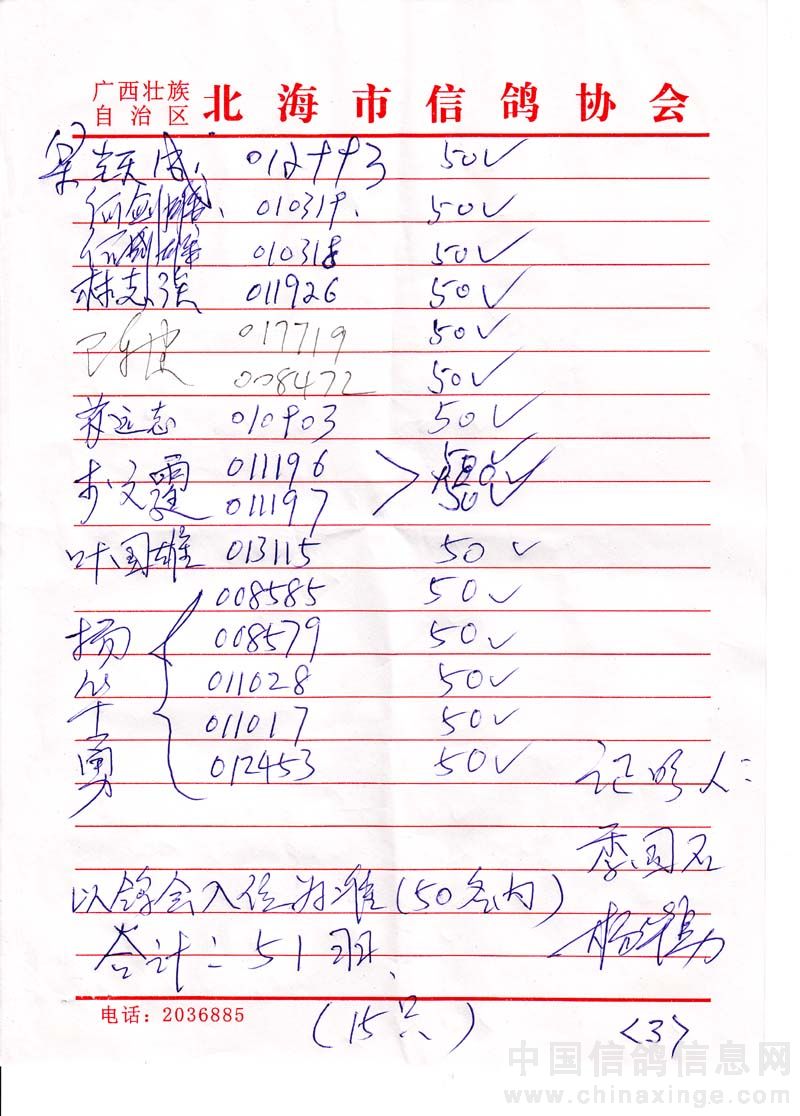 广西壮族
自治区
北海市信鸽协会
50√
010319. 50√
010318 50√
林志强 011926 50√
017719 50√
008472 50√
远志 010903 50√
文霆 011196 50√
011197 50√
叶国雄 013115 50√
008585 50√
008579 50√
011028 50√
011017 50√
012453 50√
杨
士
勇
证明人:
季国石
以鸽会入位为准(50名内)
合计:51羽、
电话:2036885
(15只)
<3>
中国信鸽信息网
www.chinaxinge.com